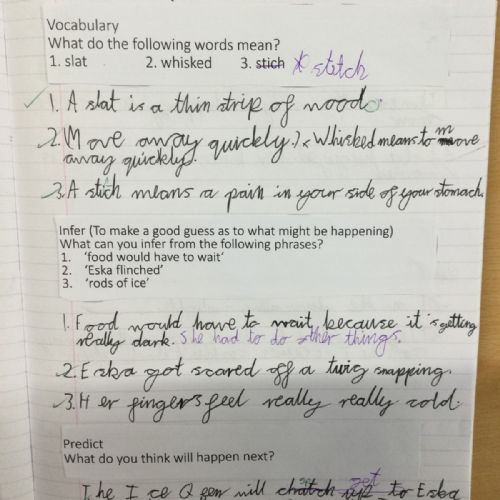 Vocabulary
What do the following words mean?
1. slat 2. whisked 3. stich * stitch
1. A slat is a thin strip of wood.
2. Move away quickly.) x Whisked means to move
away quickly.
3. A stich means a pain in your side of your stomach.
Infer (To make a good guess as to what might be happening)
What can you infer from the following phrases?
1. 'food would have to wait'
2. 'Eska flinched'
3. 'rods of ice'
1. Food would have to wait, because it's getting
really dark. She had to do other things.
2. Eska got scared off a twig snapping.
3. Her fingers feel really really cold.
Predict
What do you think will happen next?
The Ice Qeen will get to Eska